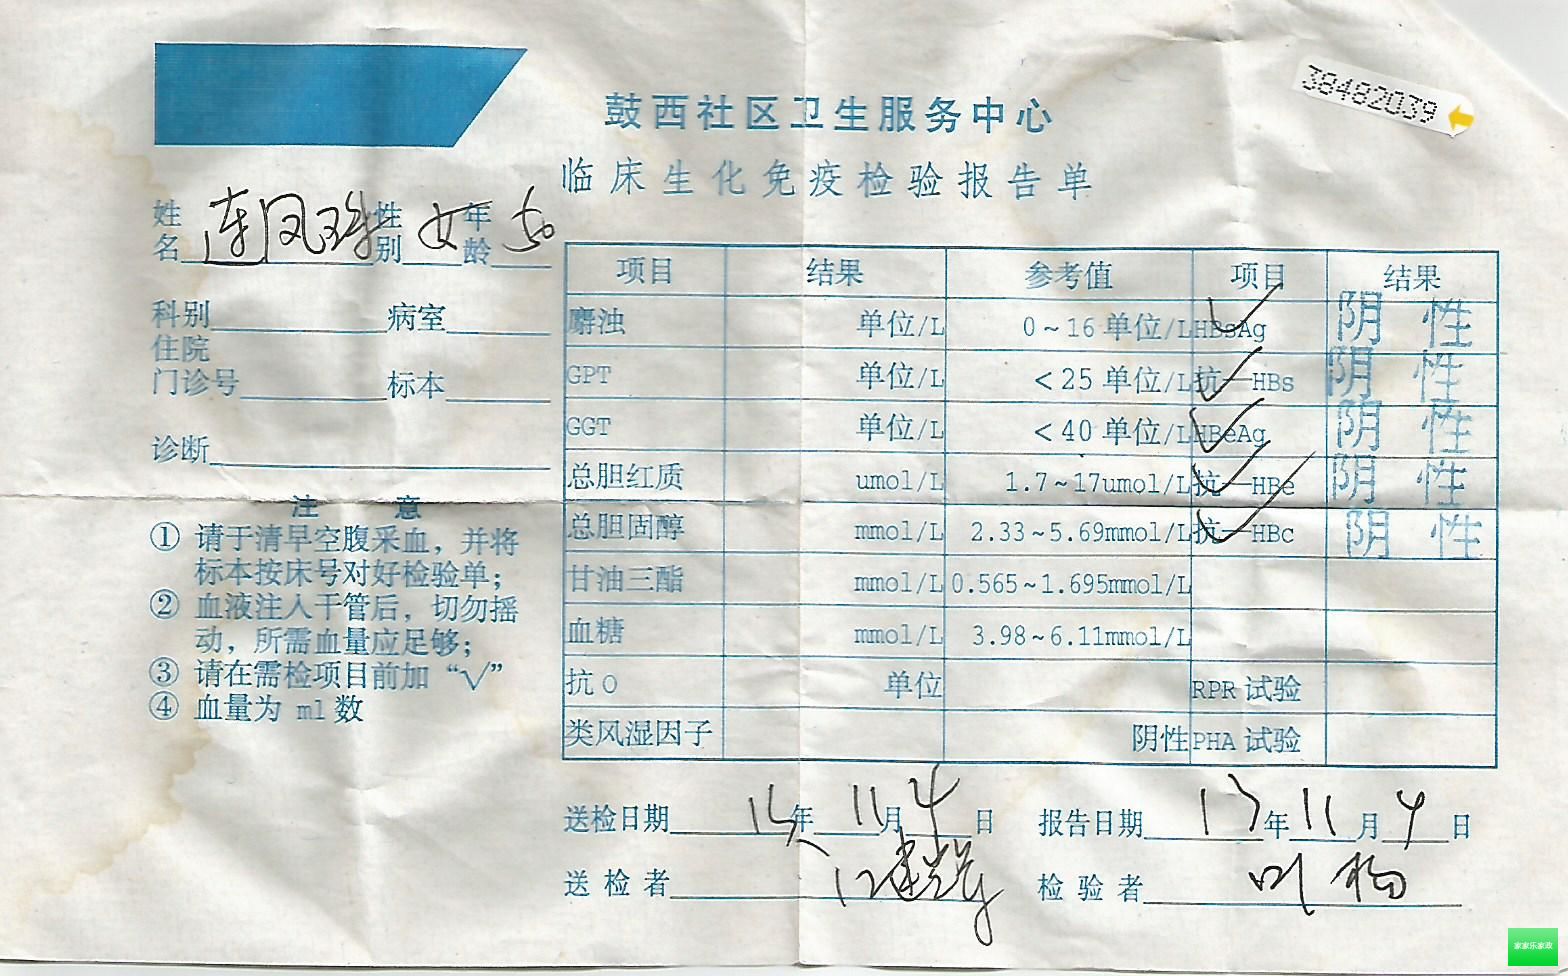 38482039
鼓西社区卫生服务中心
临床生化免疫检验报告单
姓名 连凤珠 性别 女 年龄 50
科别 病室
住院
门诊号 标本
诊断
注 意
① 请于清早空腹采血，并将
标本按床号对好检验单；
② 血液注入干管后，切勿摇
动，所需血量应足够；
③ 请在需检项目前加“√”
④ 血量为 ml 数
项目 结果 参考值 项目 结果
麝浊 单位/L 0~16 单位/L HBsAg 阴 性
GPT 单位/L <25 单位/L 抗—HBs 阴 性
GGT 单位/L <40 单位/L HBeAg 阴 性
总胆红质 umol/L 1.7~17umol/L 抗—HBe 阴 性
总胆固醇 mmol/L 2.33~5.69mmol/L 抗—HBc 阴 性
甘油三酯 mmol/L 0.565~1.695mmol/L
血糖 mmol/L 3.98~6.11mmol/L
抗 O 单位 RPR 试验
类风湿因子 阴性 PHA 试验
送检日期 年 11 月 4 日 报告日期 13 年 11 月 4 日
送检者 检验者 叶杨
家家乐家政